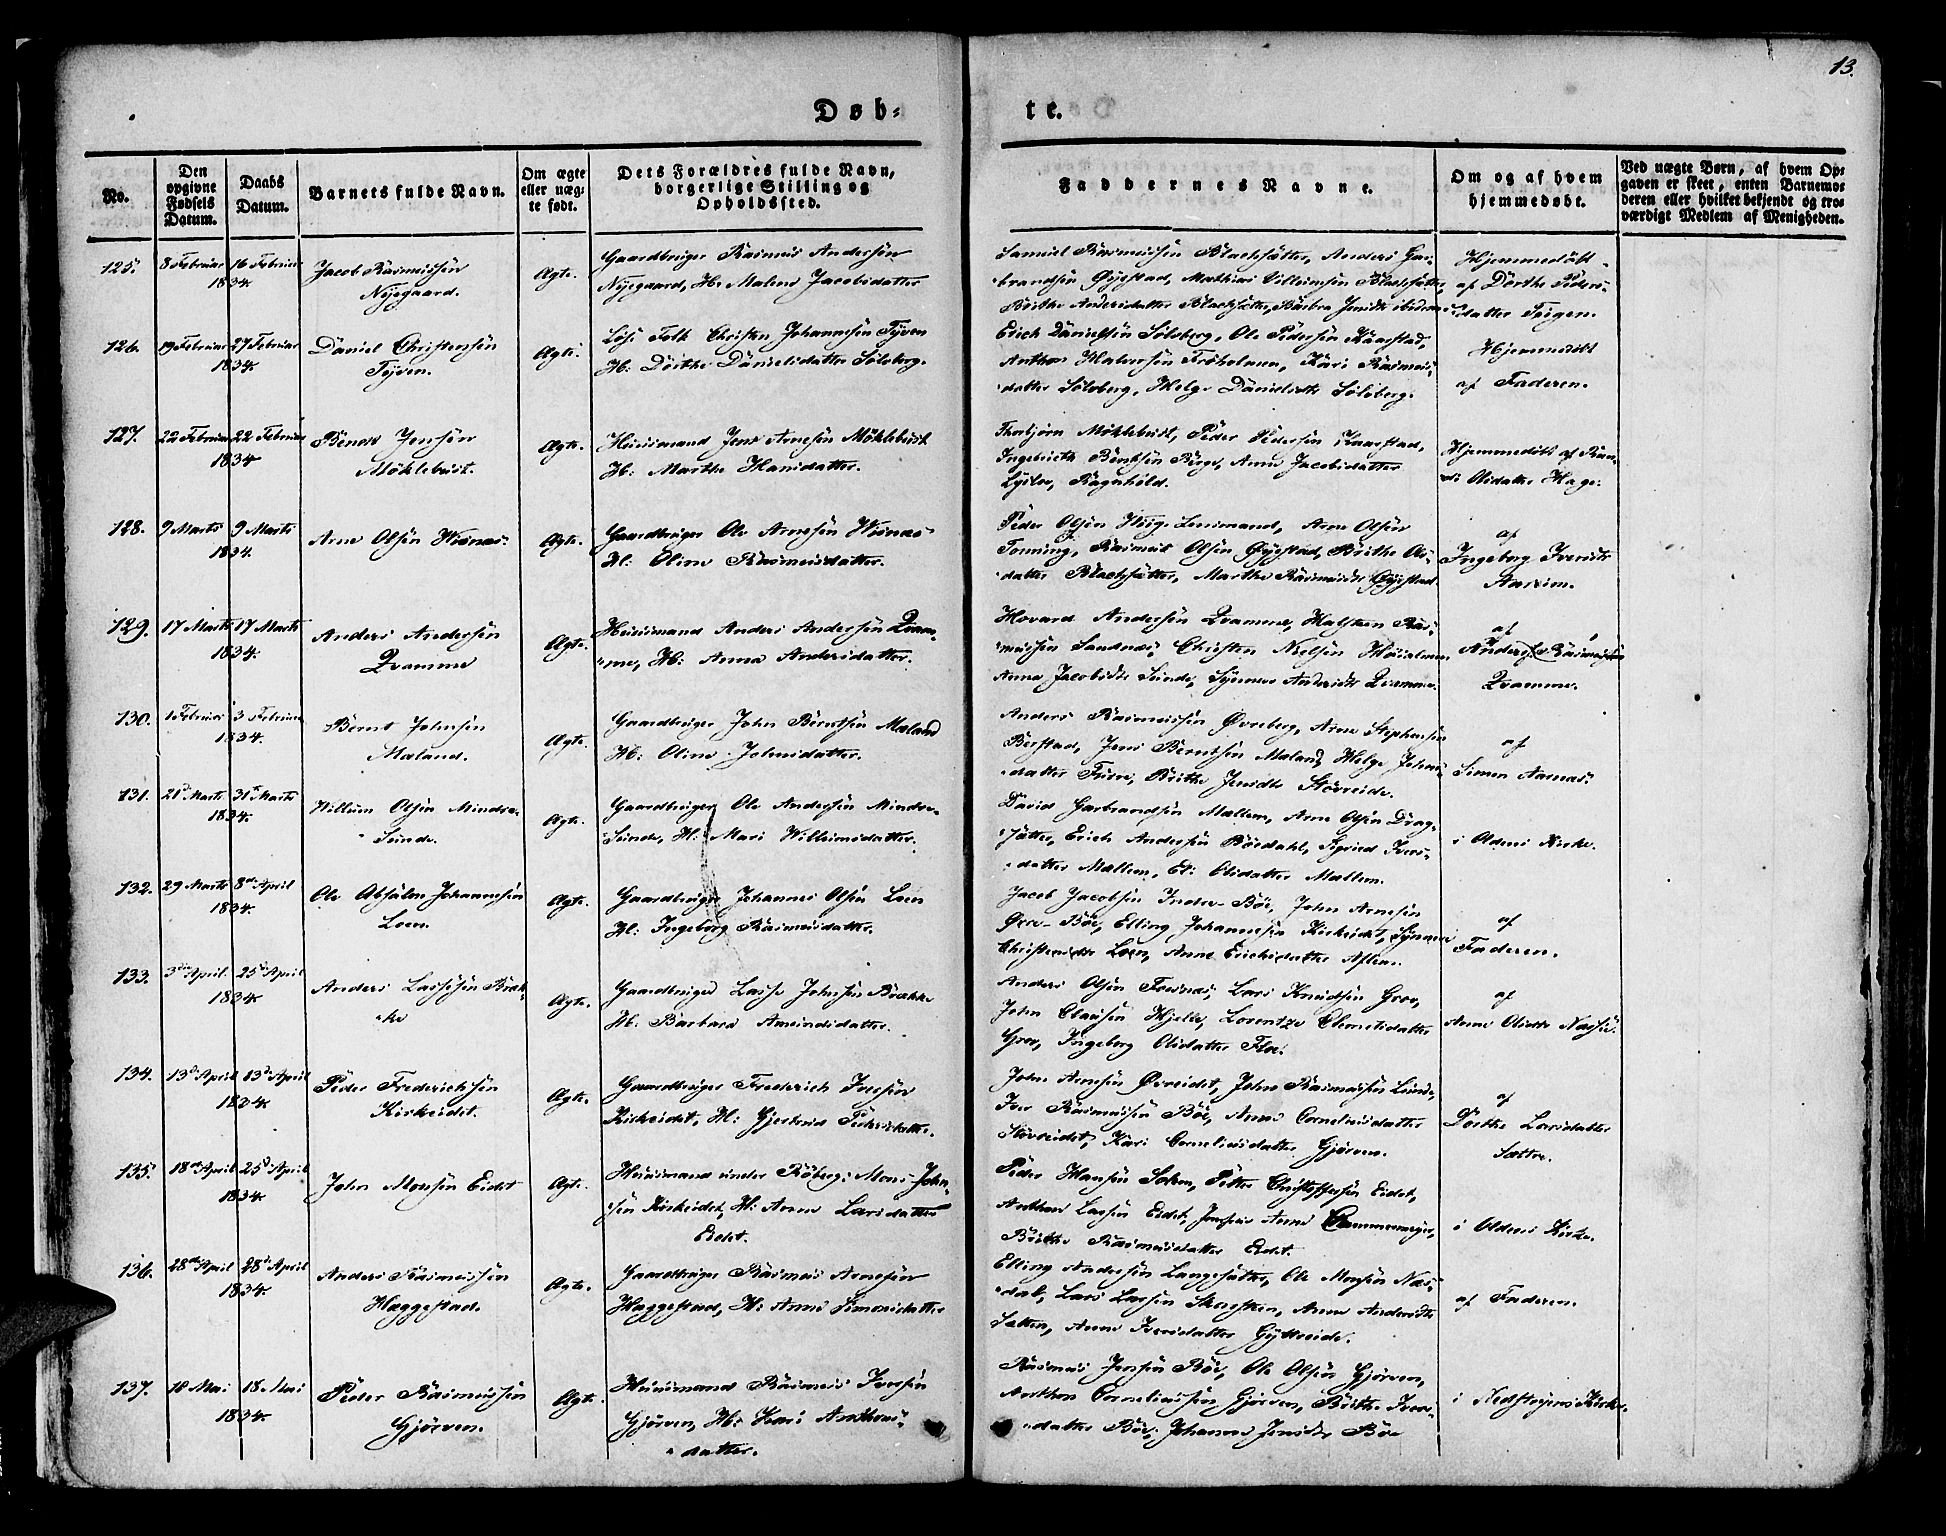 13.
Døb-
te.
No.
Den opgivne Fødsels Datum.
Daabs Datum.
Barnets fulde Navn.
Om ægte eller uæg- te født.
Dets Forældres fulde Navn, borgerlige Stilling og Opholdssted.
Faddernes Navne.
Om og af hvem hjemmedøbt.
Ved uægte Børn, af hvem Op-
gaven er skeet, enten Barnemo-
deren eller hvilket bekjendt og tro-
værdigt Medlem af Menigheden.
125. 8 Februar 16 Februar 1834.
Jacob Rasmussen
Nyegaard.
Ægte.
Gaardbruger Rasmus Andersen
Nyegaard, H: Malene Jacobsdatter
Samuel Rasmussen Blachsætter, Anders Gar-
brandsen Øyestad, Mathias Villumsen Blachsætter,
Brithe Andersdatter Blachsætter, Barbra Jensdtr
Hjemmedøbt
af Dorthe Peders-
datter Teigen.
126. 19 Februar 27 Februar 1834.
Daniel Christensen
Tyven.
Ægte.
Løse Folk Christen Johannesen Tyven
H: Dorthe Danielsdatter Solsberg.
Erich Danielsen Solsberg, Ole Pedersen Kaarstad,
Anthon Frøholmen, Kari Rasmus-
datter Solsberg, Helge Danielsdtr Solsberg.
Hjemmedøbt
af Faderen.
127. 22 Februar 22 Februar 1834
Jensen
Møklebust.
Ægte.
Huusmand Jens Arnesen Møklebust
H: Marthe Hansdatter.
Thorbjørn Møklebust, Peder Pedersen Kaarstad,
Ingebrigth Bentsen Berge, Anne Jacobsdatter
Ragnhild.
Hjemmedøbt af Ran-
di Olsdatter Hage.
128. 9 Marts 9 Marts 1834.
Arne Olsen Wisnæs.
Ægte.
Gaardbruger Ole Arnesen Wisnæs
H: Oline Rasmusdatter.
Peder Olsen Lensmand, Arne Olsen
Tonning, Rasmus Olsen Øyestad, Brithe Ols-
datter Blachsætter, Marthe Rasmusdtr Øyestad
af
Ingeborg Iversdtr
Aarheim.
129. 17 Marts 17 Marts 1834.
Anders Andersen
Qvamme
Ægte.
Huusmand Anders Andersen Qvam-
me, H: Anna Andersdatter.
Hovard Andersen Qvamme, Halsteen Ras-
mussen Sandnæs, Christen Nielsen
Anne Jacobsdtr Sunde, Synneve Andersdtr Qvamme.
af
Anders Rasmussen
Qvamme.
130. 1 Februar 3 Februar 1834.
Bernt Johnsen
Maland.
Ægte.
Gaardbruger John Berntsen Maland
H: Oline Johnsdatter.
Anders Rasmussen Øvreberg, Arne Stephensen
Berstad, Jens Berntsen Maland, Helge Johns-
datter Brithe Jensdtr Storeide.
af
Simon Aarnæs.
131. 21de Marts 31te Marts 1834.
Willum Olsen Mindre-
Sunde.
Ægte.
Gaardbruger Ole Andersen Mindre-
Sunde, H: Mari Willumsdatter.
David Garbrandsen Mallem, Arne Olsen Drag-
sætter, Erich Andersen Bøedahl, Sigried Ivers-
datter Mallem, El: Olsdatter Mallem.
i Oldens Kirke.
132. 29 Marts 8de April 1834.
Ole Absalon Johannesen
Loen.
Ægte.
Gaardbruger Johannes Olsen Loen
H: Ingeborg Rasmusdatter.
Jacob Jacobsen Indre-Bøe, John Arnesen
Øvre-Bøe, Elling Johannesen Kirkeidet, Synneve
Christensdtr Loen, Anne Erichsdatter
af
Faderen.
133. 3die April. 25de April 1834
Anders Lassesen Bræk-
ke
Ægte.
Gaardbruger Lasse Johnsen Brække
H: Barbara Amundsdatter.
Anders Olsen Fosnæs, Lars Knudsen Grov,
John Clausen Hjelle, Lorentze Clemetsdatter
Grov, Ingeborg Olsdatter Floe.
af
Anne Olsdtr
134. 13de April 13de April 1834
Peder Frederichsen
Kirkeidet.
Ægte.
Gaardbruger Frederich Iversen
Kirkeidet, H: Gjertrud Pedersdatter.
John Arnesen Øvreidet, John Rasmussen Lunde,
Iver Rasmussen Bøe, Anne Corneliusdatter
Storeidet, Kari Corneliusdatter Gjørven.
af
Dorthe Larsdatter
Sættre.
135. 18de April 25de April 1834.
John Monsen Eidet
Ægte.
Huusmand under Røberg: Mons John-
sen Kirkeidet, H: Anne Larsdatter
Eidet.
Peder Hansen Solem, Petter Christoffersen Eidet,
Anthon Larsen Eidet, Jomfrue Anne Cammermeyer,
Brithe Rasmusdatter Eidet.
i Oldens Kirke.
136. 28de April 28de April 1834.
Anders Rasmussen
Hæggestad.
Ægte.
Gaardbruger Rasmus Arnesen
Hæggestad, H: Anne Simonsdatter
Elling Andersen Langesætter, Ole Monsen Næs-
dal, Lars Larsen Anne Andersdtr
Sætten, Anne Iversdatter Gytreide.
af Faderen.
137. 18 Mai 18 Mai 1834.
Peder Rasmussen
Gjørven.
Ægte.
Huusmand Rasmus Iversen
Gjørven, H: Kari Anthons-
datter.
Rasmus Jensen Bøe, Ole Olsen Gjørven,
Anthon Corneliussen Gjørven, Brithe Ivers-
datter Bøe, Johanne Jensdtr Bøe
i Nedstryens Kirke.